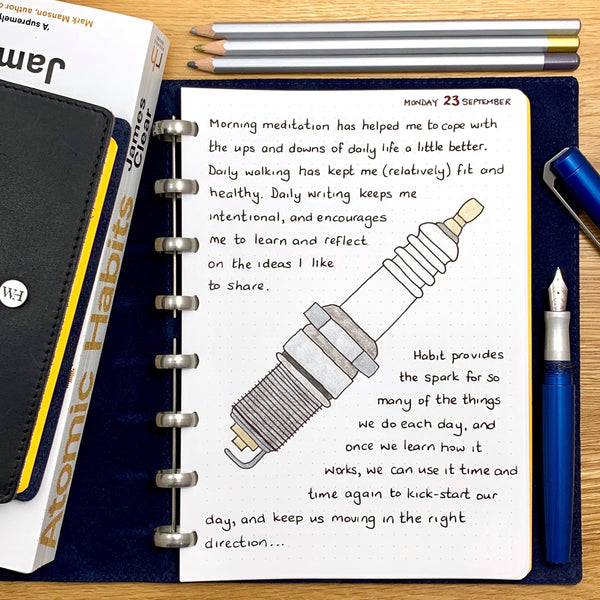 'A supremely
Mark Manson, author o
Jam
James
Clear
Atomic Habits
WH
MONDAY 23 SEPTEMBER
Morning meditation has helped me to cope with
the ups and downs of daily life a little better.
Daily walking has kept me (relatively) fit and
healthy. Daily writing keeps me
intentional, and encourages
me to learn and reflect
on the ideas I like
to share.
Habit provides
the spark for so
many of the things
we do each day, and
once we learn how it
works, we can use it time and
time again to kick-start our
day, and keep us moving in the right
direction...